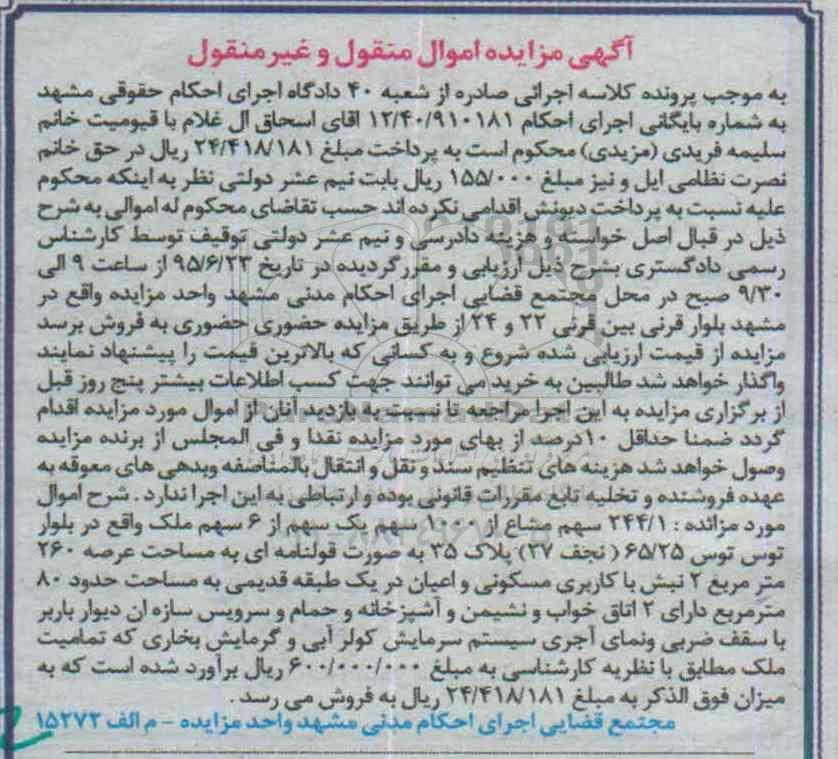 آگهی مزایده اموال منقول و غیر منقول
به موجب پرونده کلاسه اجرائی صادره از شعبه ۴۰ دادگاه اجرای احکام حقوقی مشهد
به شماره بایگانی اجرای احکام ۱۲/۴۰/۹۱۰۱۸۱ اقای اسحاق ال غلام با قیومیت خانم
سلیمه فریدی (مزیدی) محکوم است به پرداخت مبلغ ۲۴/۴۱۸/۱۸۱ ریال در حق خانم
نصرت نظامی ایل و نیز مبلغ ۱۵۵/۰۰۰ ریال بابت نیم عشر دولتی نظر به اینکه محکوم
علیه نسبت به پرداخت دیونش اقدامی نکرده اند حسب تقاضای محکوم له اموالی به شرح
ذیل در قبال اصل خواسته و هزینه دادرسی و نیم عشر دولتی توقیف توسط کارشناس
رسمی دادگستری بشرح ذیل ارزیابی و مقرر گردیده در تاریخ ۹۵/۶/۲۳ از ساعت ۹ الی
۹/۳۰ صبح در محل مجتمع قضایی اجرای احکام مدنی مشهد واحد مزایده واقع در
مشهد بلوار قرنی بین قرنی ۲۲ و ۲۴ از طریق مزایده حضوری حضوری به فروش برسد
مزایده از قیمت ارزیابی شده شروع و به کسانی که بالاترین قیمت را پیشنهاد نمایند
واگذار خواهد شد طالبین به خرید می توانند جهت کسب اطلاعات بیشتر پنج روز قبل
از برگزاری مزایده به این اجرا مراجعه تا نسبت به بازدید آنان از اموال مورد مزایده اقدام
گردد ضمنا حداقل ۱۰درصد از بهای مورد مزایده نقدا و فی المجلس از برنده مزایده
وصول خواهد شد هزینه های تنظیم سند و نقل و انتقال بالمناصفه وبدهی های معوقه به
عهده فروشنده و تخلیه تابع مقررات قانونی بوده و ارتباطی به این اجرا ندارد . شرح اموال
مورد مزائده : ۲۴۴/۱ سهم مشاع از ۱۰۰۰ سهم یک سهم از ۶ سهم ملک واقع در بلوار
توس توس ۶۵/۲۵ ( نجف ۲۷) پلاک ۳۵ به صورت قولنامه ای به مساحت عرصه ۲۶۰
متر مربع ۲ نبش با کاربری مسکونی و اعیان در یک طبقه قدیمی به مساحت حدود ۸۰
مترمربع دارای ۲ اتاق خواب و نشیمن و آشپزخانه و حمام و سرویس سازه ان دیوار باربر
با سقف ضربی ونمای آجری سیستم سرمایش کولر آبی و گرمایش بخاری که تمامیت
ملک مطابق با نظریه کارشناسی به مبلغ ۶۰۰/۰۰۰/۰۰۰ ریال برآورد شده است که به
میزان فوق الذکر به مبلغ ۲۴/۴۱۸/۱۸۱ ریال به فروش می رسد .
مجتمع قضایی اجرای احکام مدنی مشهد واحد مزایده - م الف ۱۵۲۷۳